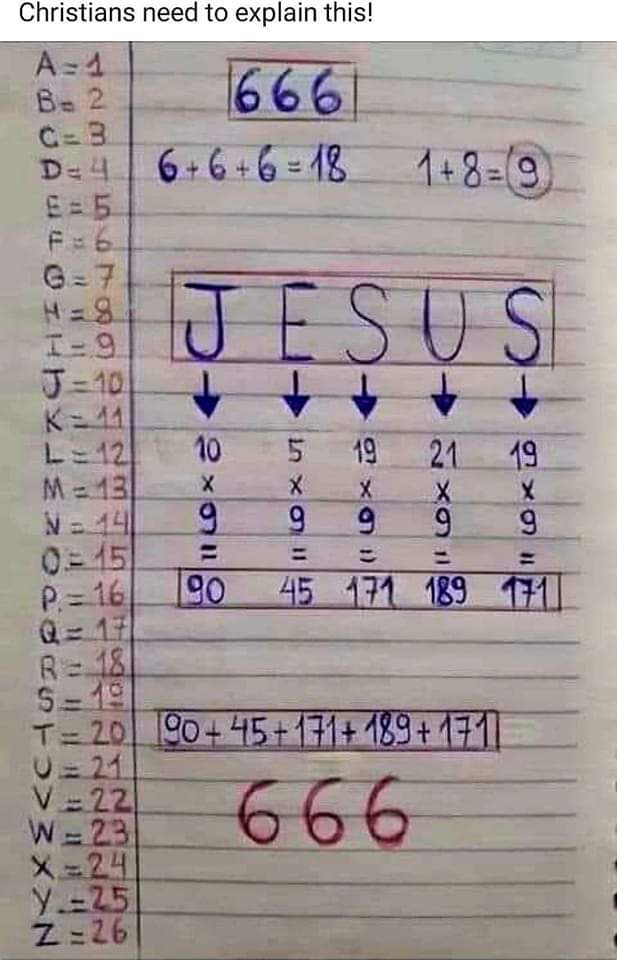 Christians need to explain this!
A = 1
B = 2
C = 3
D = 4
E = 5
F = 6
G = 7
H = 8
I = 9
J = 10
K = 11
L = 12
M = 13
N = 14
O = 15
P. = 16
Q = 17
R = 18
S = 19
T = 20
U = 21
V = 22
W = 23
X = 24
Y. = 25
Z = 26
666
6 + 6 + 6 = 18 1 + 8 = 9
JESUS
10 5 19 21 19
x x x x x
9 9 9 9 9
= = = = =
90 45 171 189 171
90 + 45 + 171 + 189 + 171
666